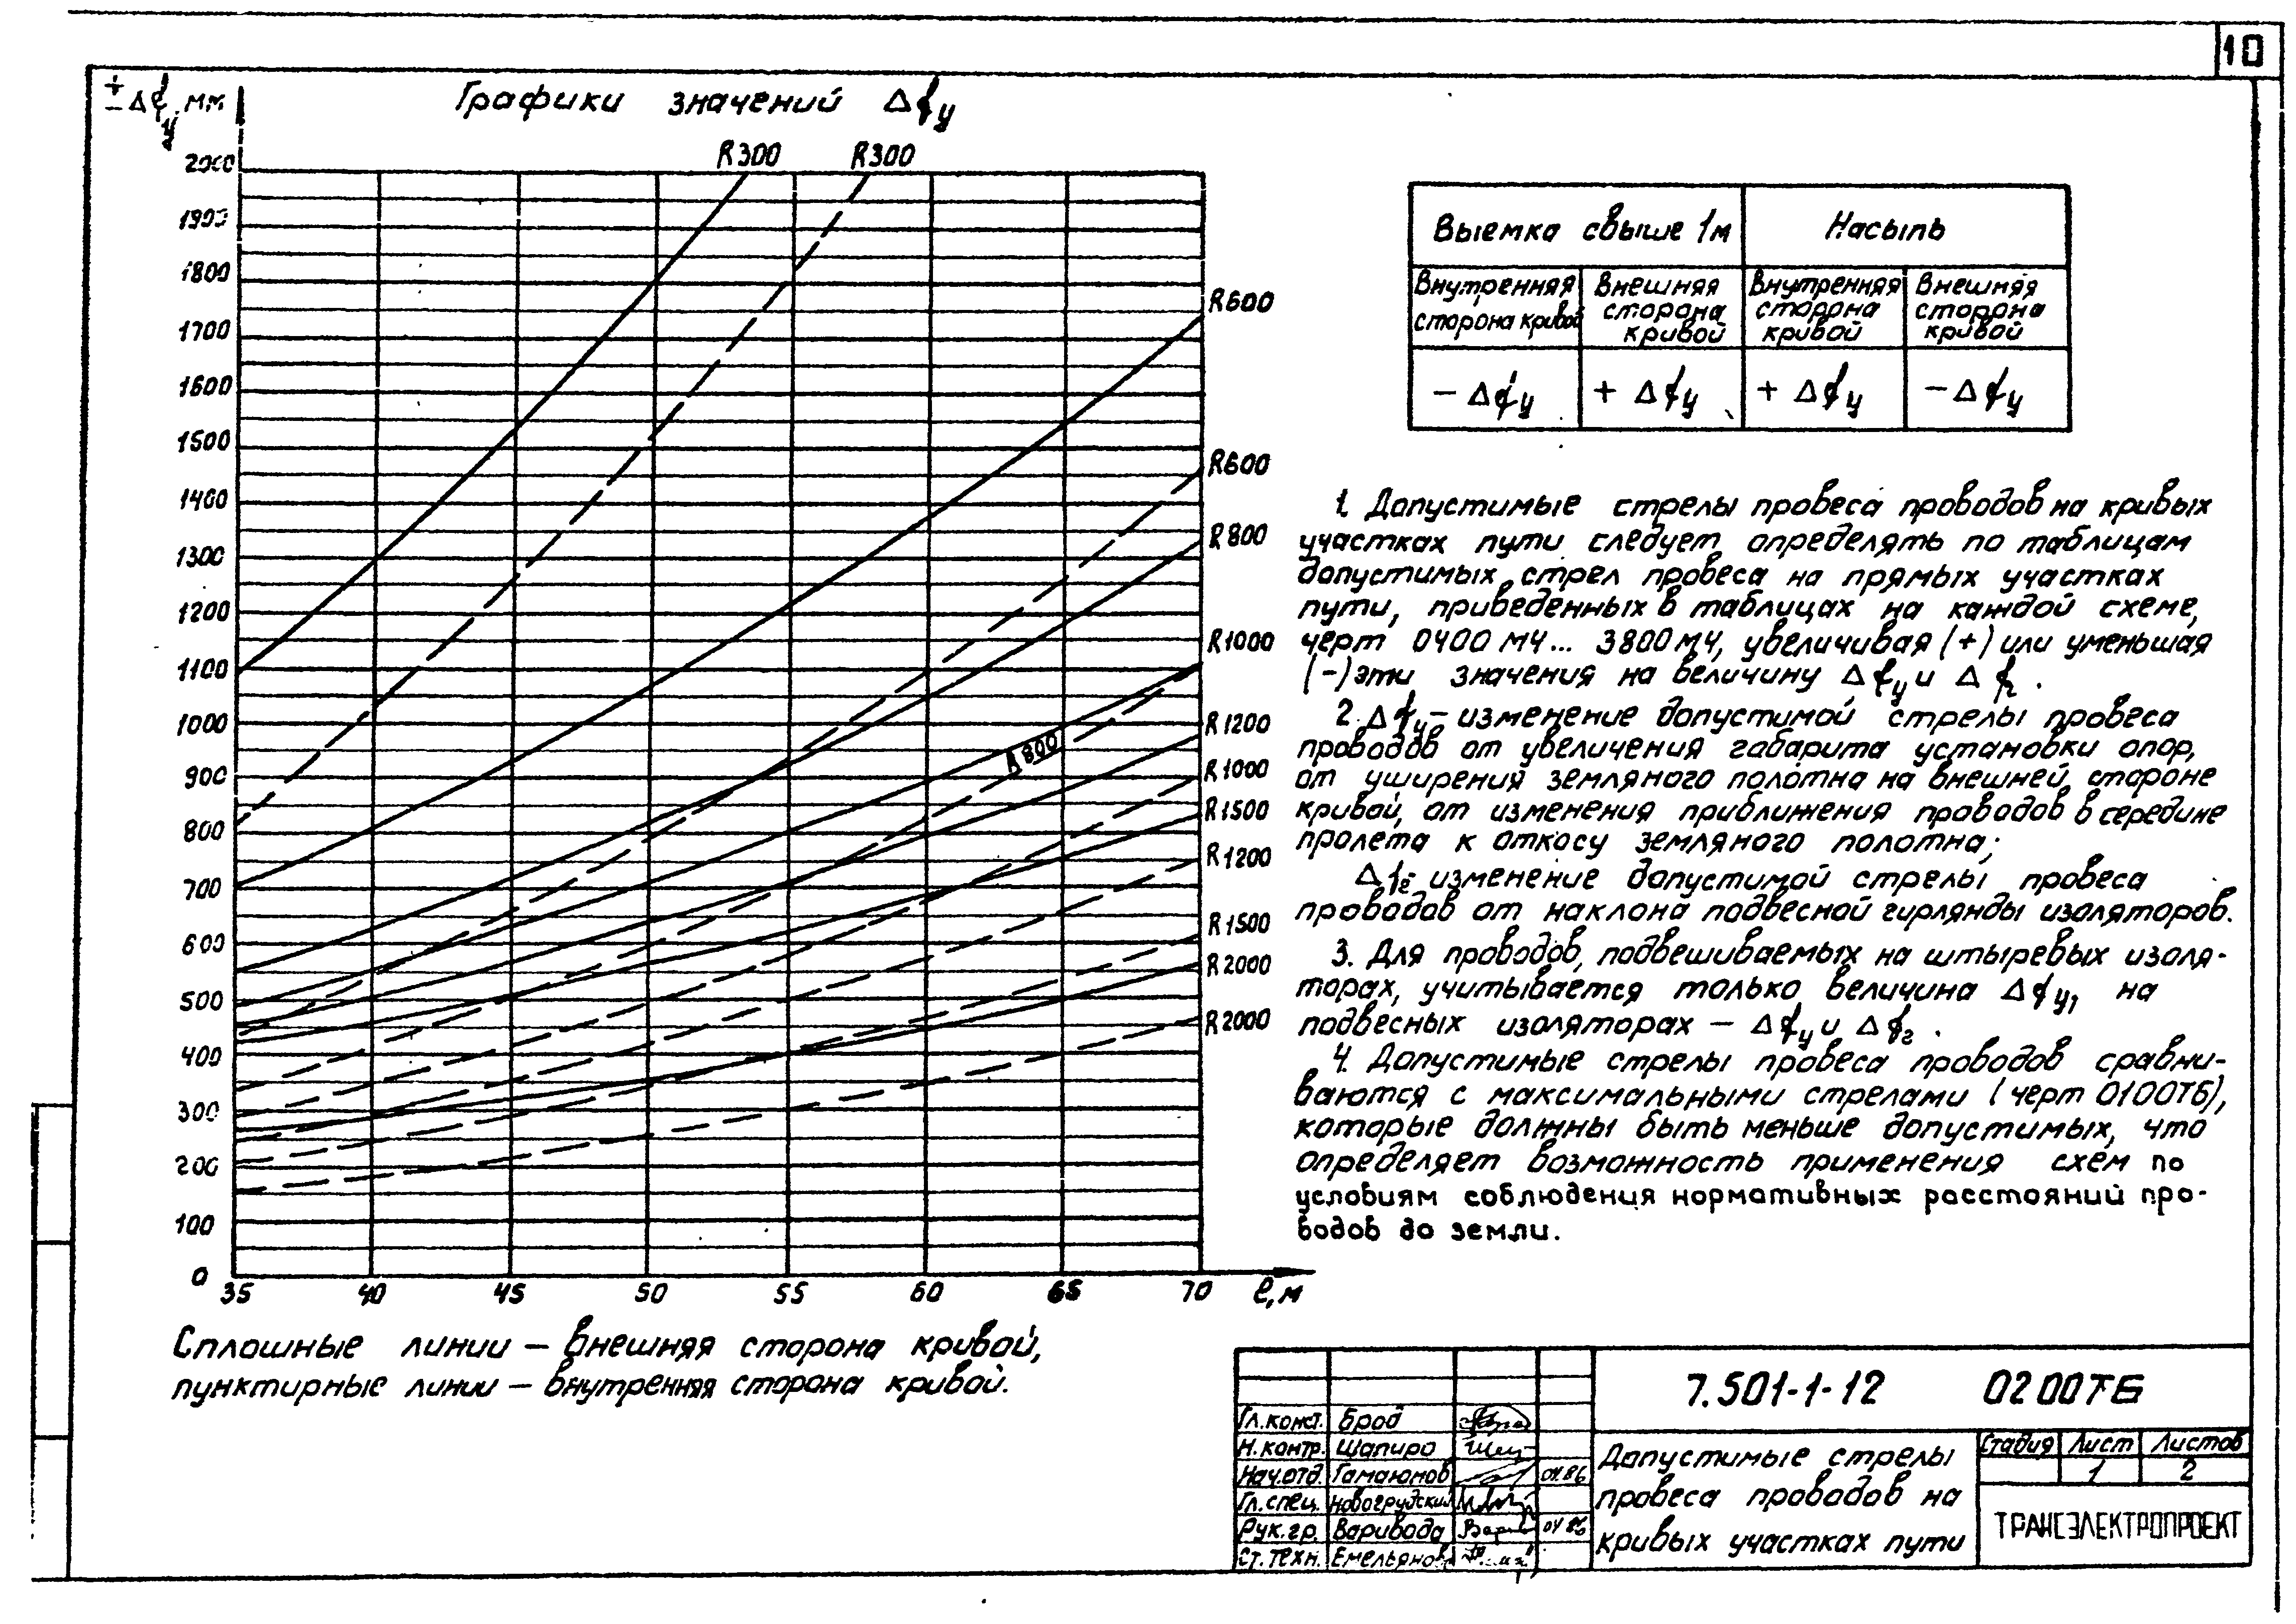 10
± Δfу, мм
Графики значений Δfу
R300 R300
2000
1900
1800
1700
1600
1500
1400
1300
1200
1100
1000
900
800
700
600
500
400
300
200
100
0
35 40 45 50 55 60 65 70 ℓ, м
R600
R600
R800
R1000
R1200
R800
R1000
R1500
R1200
R1500
R2000
R2000
Сплошные линии – внешняя сторона кривой,
пунктирные линии – внутренняя сторона кривой.
Выемка свыше 1м Насыпь
Внутренняя сторона кривой
Внешняя сторона кривой
Внутренняя сторона кривой
Внешняя сторона кривой
– Δfу + Δfу + Δfу – Δfу
1. Допустимые стрелы провеса проводов на кривых
участках пути следует определять по таблицам
допустимых стрел провеса на прямых участках
пути, приведенных в таблицах на каждой схеме,
черт 0400 МЧ... 3800 МЧ, увеличивая (+) или уменьшая
(–) эти значения на величину Δfу и Δfг.
2. Δfу – изменение допустимой стрелы провеса
проводов от увеличения габарита установки опор,
от уширения земляного полотна на внешней стороне
кривой, от изменения приближения проводов в середине
пролета к откосу земляного полотна;
Δfг – изменение допустимой стрелы провеса
проводов от наклона подвесной гирлянды изоляторов.
3. Для проводов, подвешиваемых на штыревых изоля-
торах, учитывается только величина Δfу, на
подвесных изоляторах – Δfу и Δfг.
4. Допустимые стрелы провеса проводов сравни-
ваются с максимальными стрелами (черт 0100ТБ),
которые должны быть меньше допустимых, что
определяет возможность применения схем по
условиям соблюдения нормативных расстояний про-
водов до земли.
7.501-1-12 0200ТБ
Гл.конст. Брод
Н.контр. Шапиро
Нач.отд. Гамаюнов 04.86
Гл.спец. Новогрудский
Рук.гр. Варивода 04 86
Ст.техн. Емельянов
Допустимые стрелы
провеса проводов на
кривых участках пути
Стадия Лист Листов
1 2
ТРАНСЭЛЕКТРОПРОЕКТ